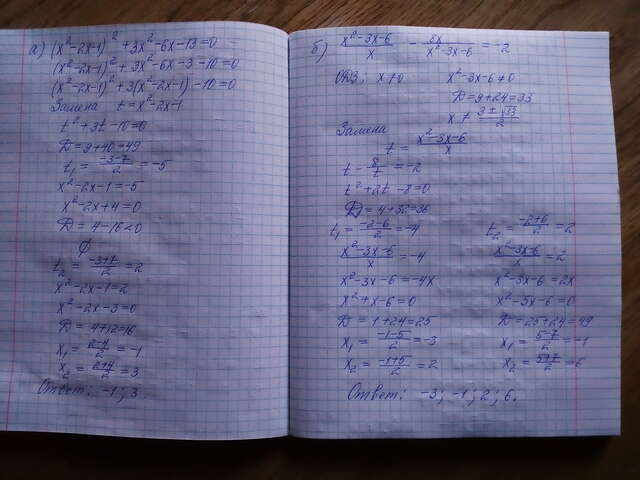 а) (x²-2x-1)² + 3x²-6x-13=0
(x²-2x-1)² + 3x²-6x-3-10=0
(x²-2x-1)² + 3(x²-2x-1)-10=0
Замена t = x²-2x-1
t² + 3t - 10=0
D = 9+40=49
t₁ = (-3-7)/2 = -5
x²-2x-1=-5
x²-2x+4=0
D = 4-16<0
∅
t₂ = (-3+7)/2 = 2
x²-2x-1=2
x²-2x-3=0
D = 4+12=16
x₁ = (2-4)/2 = -1
x₂ = (2+4)/2 = 3
Ответ: -1; 3.
б) (x²-3x-6)/x - 8x/(x²-3x-6) = -2
ОДЗ: x≠0 x²-3x-6≠0
D = 9+24=33
x ≠ (3±√33)/2
Замена
t = (x²-3x-6)/x
t - 8/t = -2
t² + 2t - 8=0
D = 4+32=36
t₁ = (-2-6)/2 = -4 t₂ = (-2+6)/2 = 2
(x²-3x-6)/x = -4 (x²-3x-6)/x = 2
x²-3x-6=-4x x²-3x-6=2x
x²+x-6=0 x²-5x-6=0
D = 1+24=25 D = 25+24=49
x₁ = (-1-5)/2 = -3 x₁ = (5-7)/2 = -1
x₂ = (-1+5)/2 = 2 x₂ = (5+7)/2 = 6
Ответ: -3; -1; 2; 6.